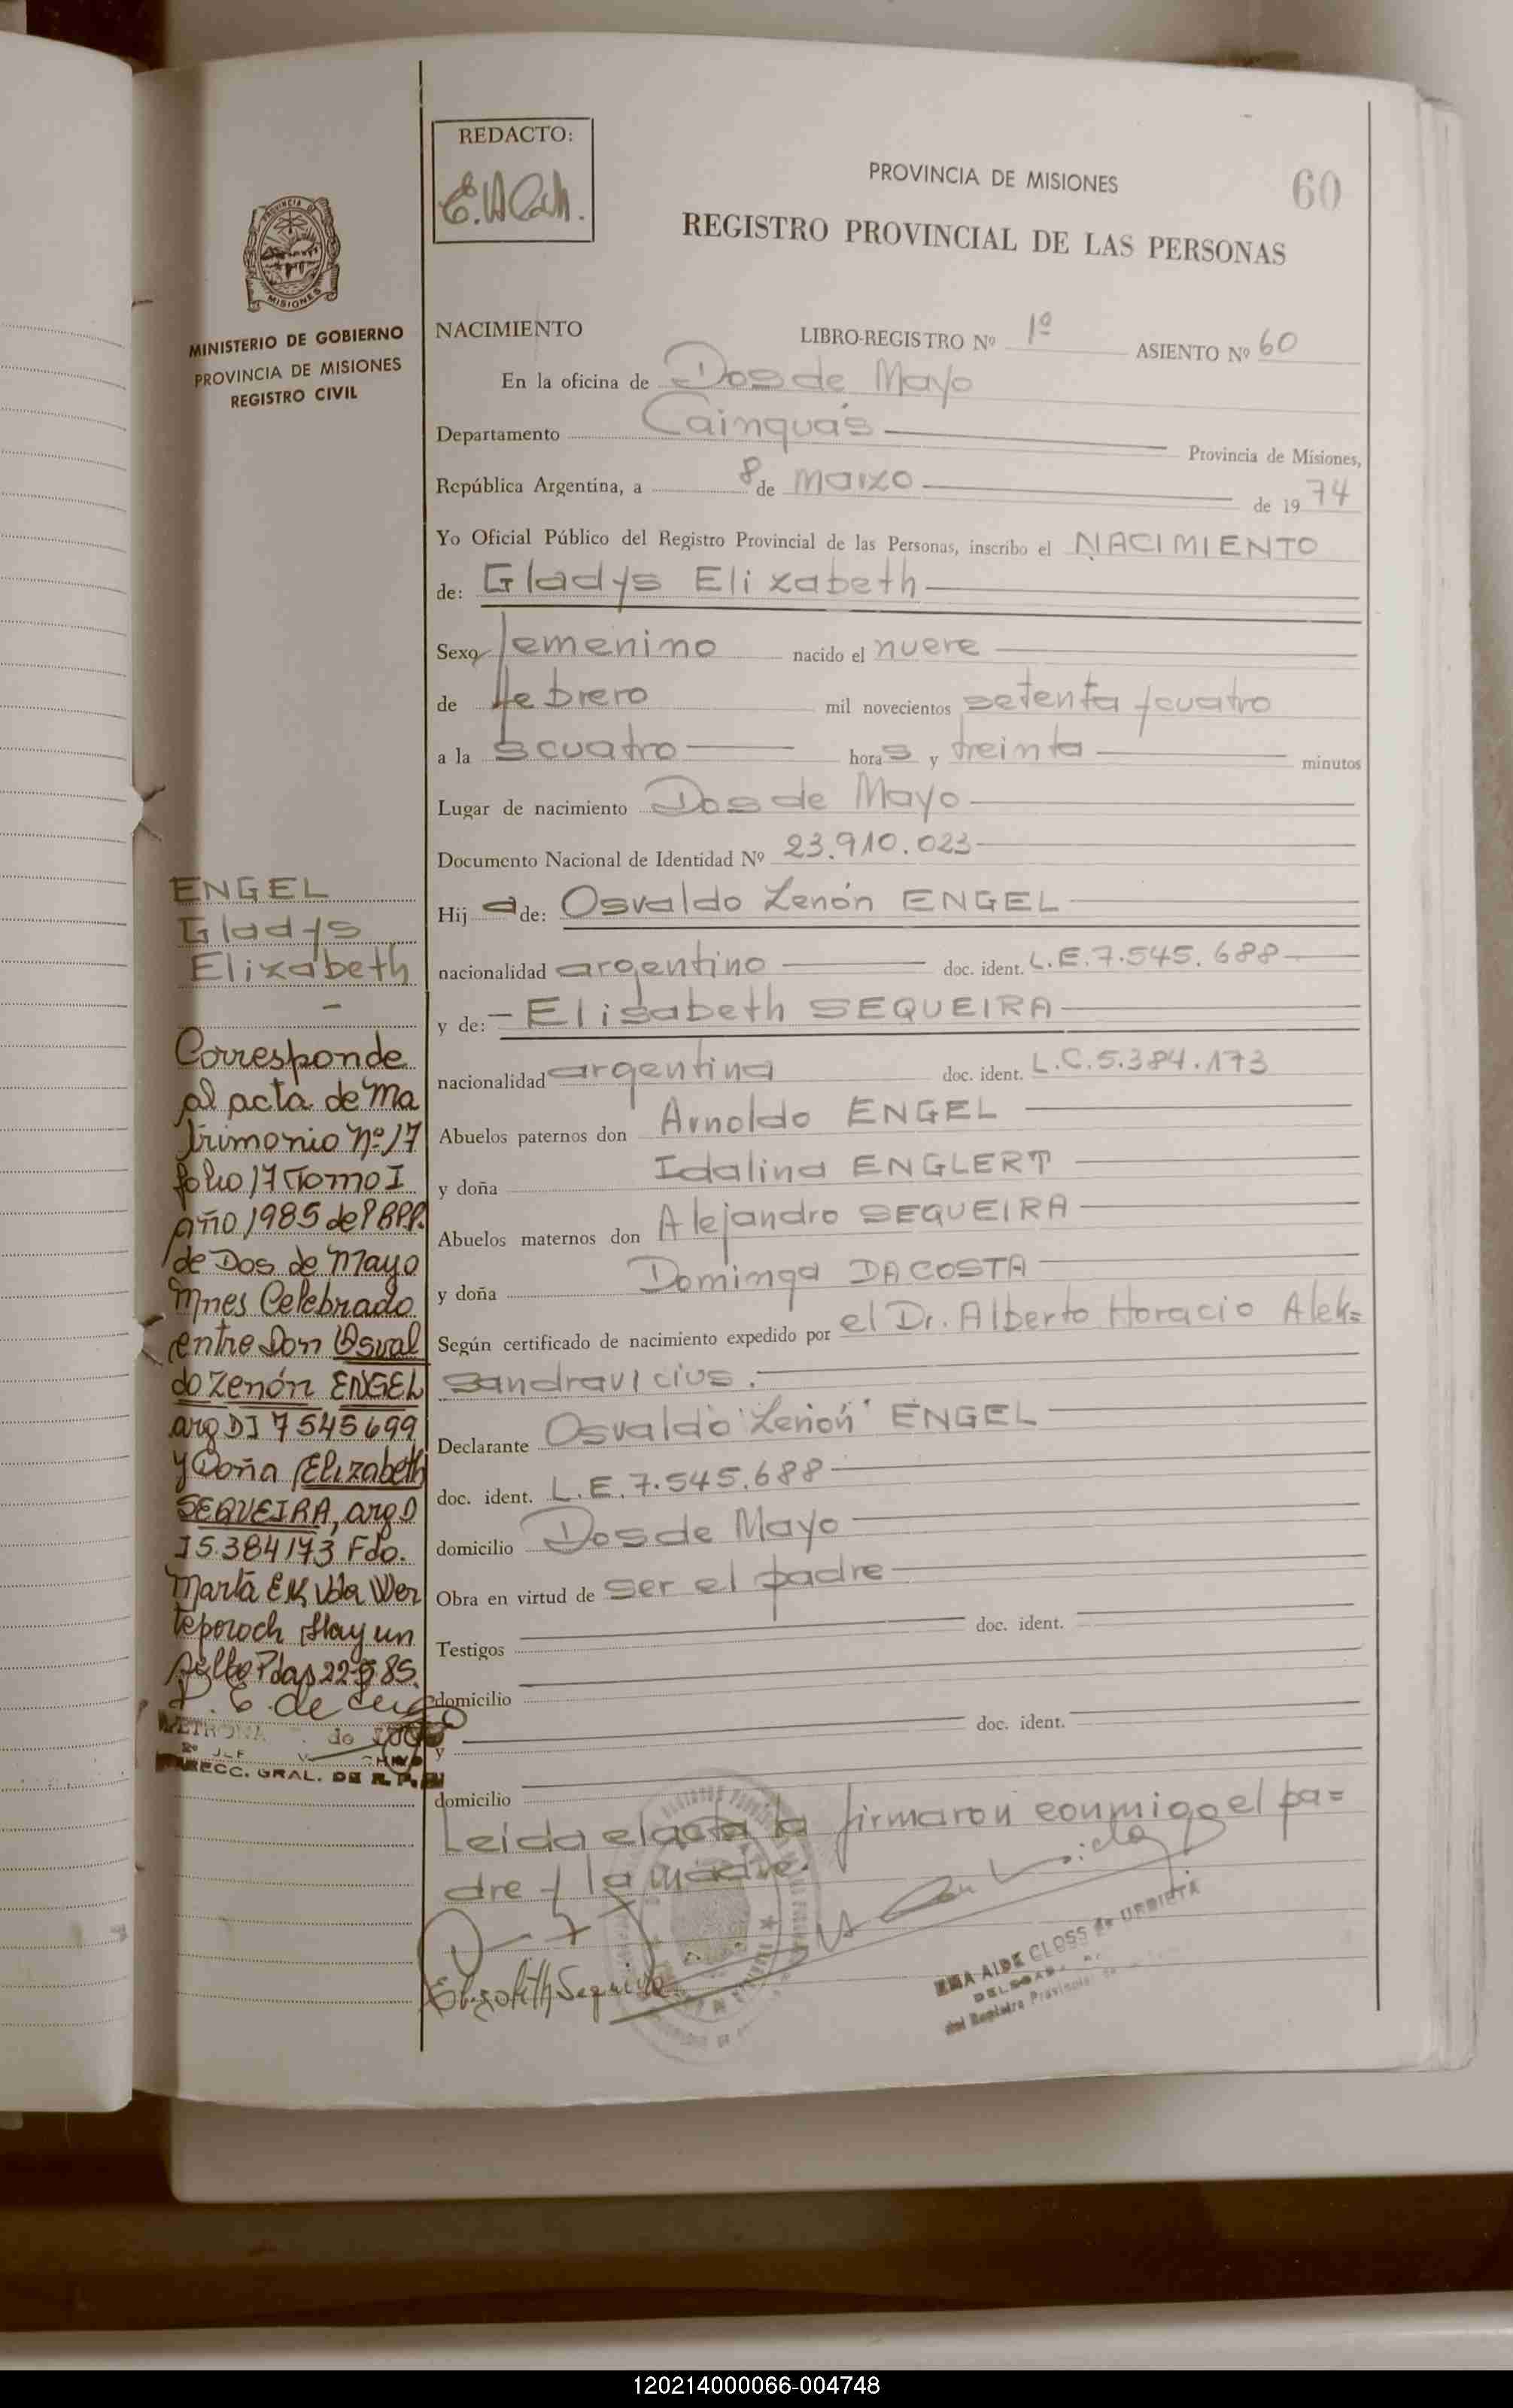 REDACTO:
PROVINCIA DE MISIONES
60
REGISTRO PROVINCIAL DE LAS PERSONAS
MISIONES
MINISTERIO DE GOBIERNO
PROVINCIA DE MISIONES
REGISTRO CIVIL
NACIMIENTO LIBRO-REGISTRO Nº 1º ASIENTO Nº 60
En la oficina de Dos de Mayo
Departamento Cainguás Provincia de Misiones,
República Argentina, a 8 de marzo de 1974
Yo Oficial Público del Registro Provincial de las Personas, inscribo el NACIMIENTO
de: Gladys Elizabeth
Sexo femenino nacido el nueve
de febrero mil novecientos setenta y cuatro
a las cuatro horas y treinta minutos
Lugar de nacimiento Dos de Mayo
Documento Nacional de Identidad Nº 23.910.023
Hija de: Osvaldo Zenón ENGEL
nacionalidad argentino doc. ident. L.E.7.545.688
y de: Elisabeth SEQUEIRA
nacionalidad argentina doc. ident. L.C.5.384.173
Abuelos paternos don Arnoldo ENGEL
y doña Idalina ENGLERT
Abuelos maternos don Alejandro SEQUEIRA
y doña Dominga DACOSTA
Según certificado de nacimiento expedido por el Dr. Alberto Horacio Alek=
sandravicius.
Declarante Osvaldo Zenón ENGEL
doc. ident. L.E.7.545.688
domicilio Dos de Mayo
Obra en virtud de ser el padre
doc. ident.
Testigos
domicilio
doc. ident.
y
domicilio
Leida el acta la firmaron conmigo el pa=
dre y la madre.
Elizabeth Sequeira
EMA AIDE CLOSS de URRIETA
del Registro Provincial de
ENGEL
Gladys
Elizabeth
Corresponde
al acta de Ma
trimonio nº 17
folio 17 Tomo I
año 1985 del RPP.
de Dos de Mayo
Mnes Celebrado
entre Don Osval
do Zenón ENGEL
arg DI 7545699
y Doña Elizabeth
SEQUEIRA, arg D
I 5.384173 Fdo.
Marta E K Vda Wer
Hay un
85.
de
DIRECC. GRAL. DE R. P.
120214000066-004748